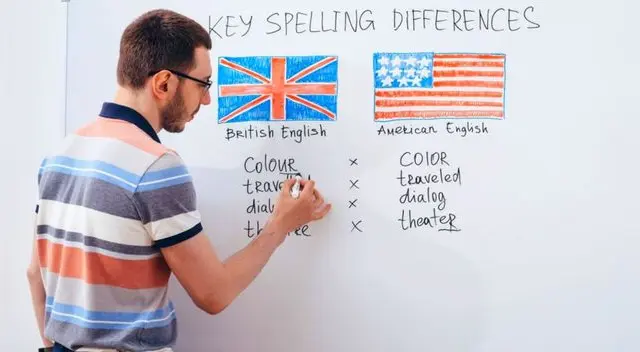 KEY SPELLING DIFFERENCES
British English American English
COLOUR × COLOR
× traveled
× dialog
× theater